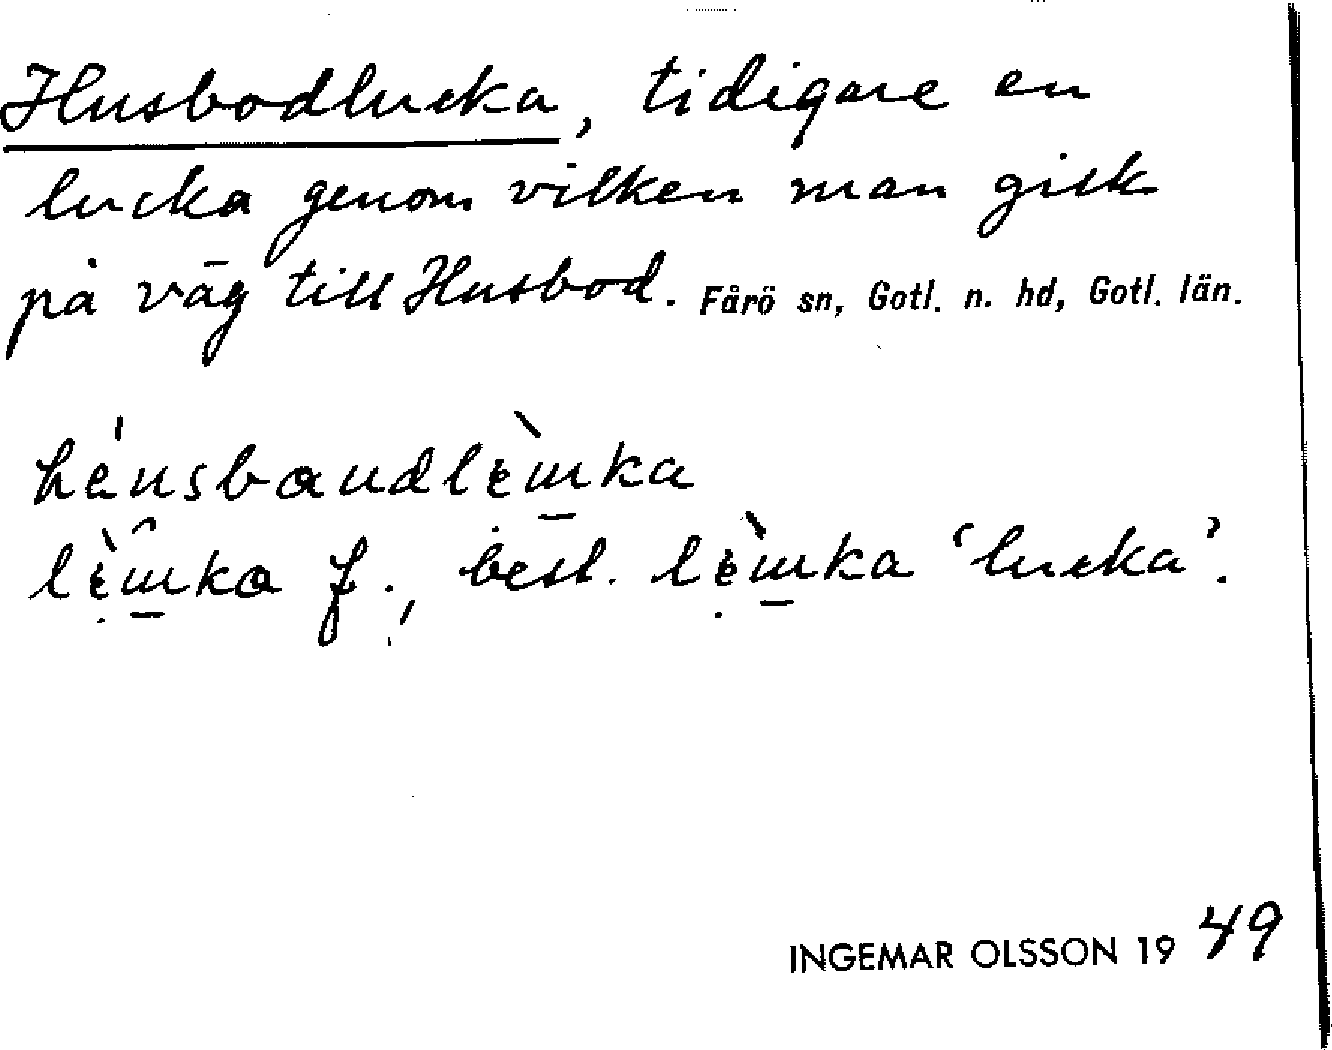 Husbodlucka, tidigare en
lucka genom vilken man gick
på väg till Husbod. Fårö sn, Gotl. n. hd, Gotl. län.
best. ‘lucka’.
INGEMAR OLSSON 19 49